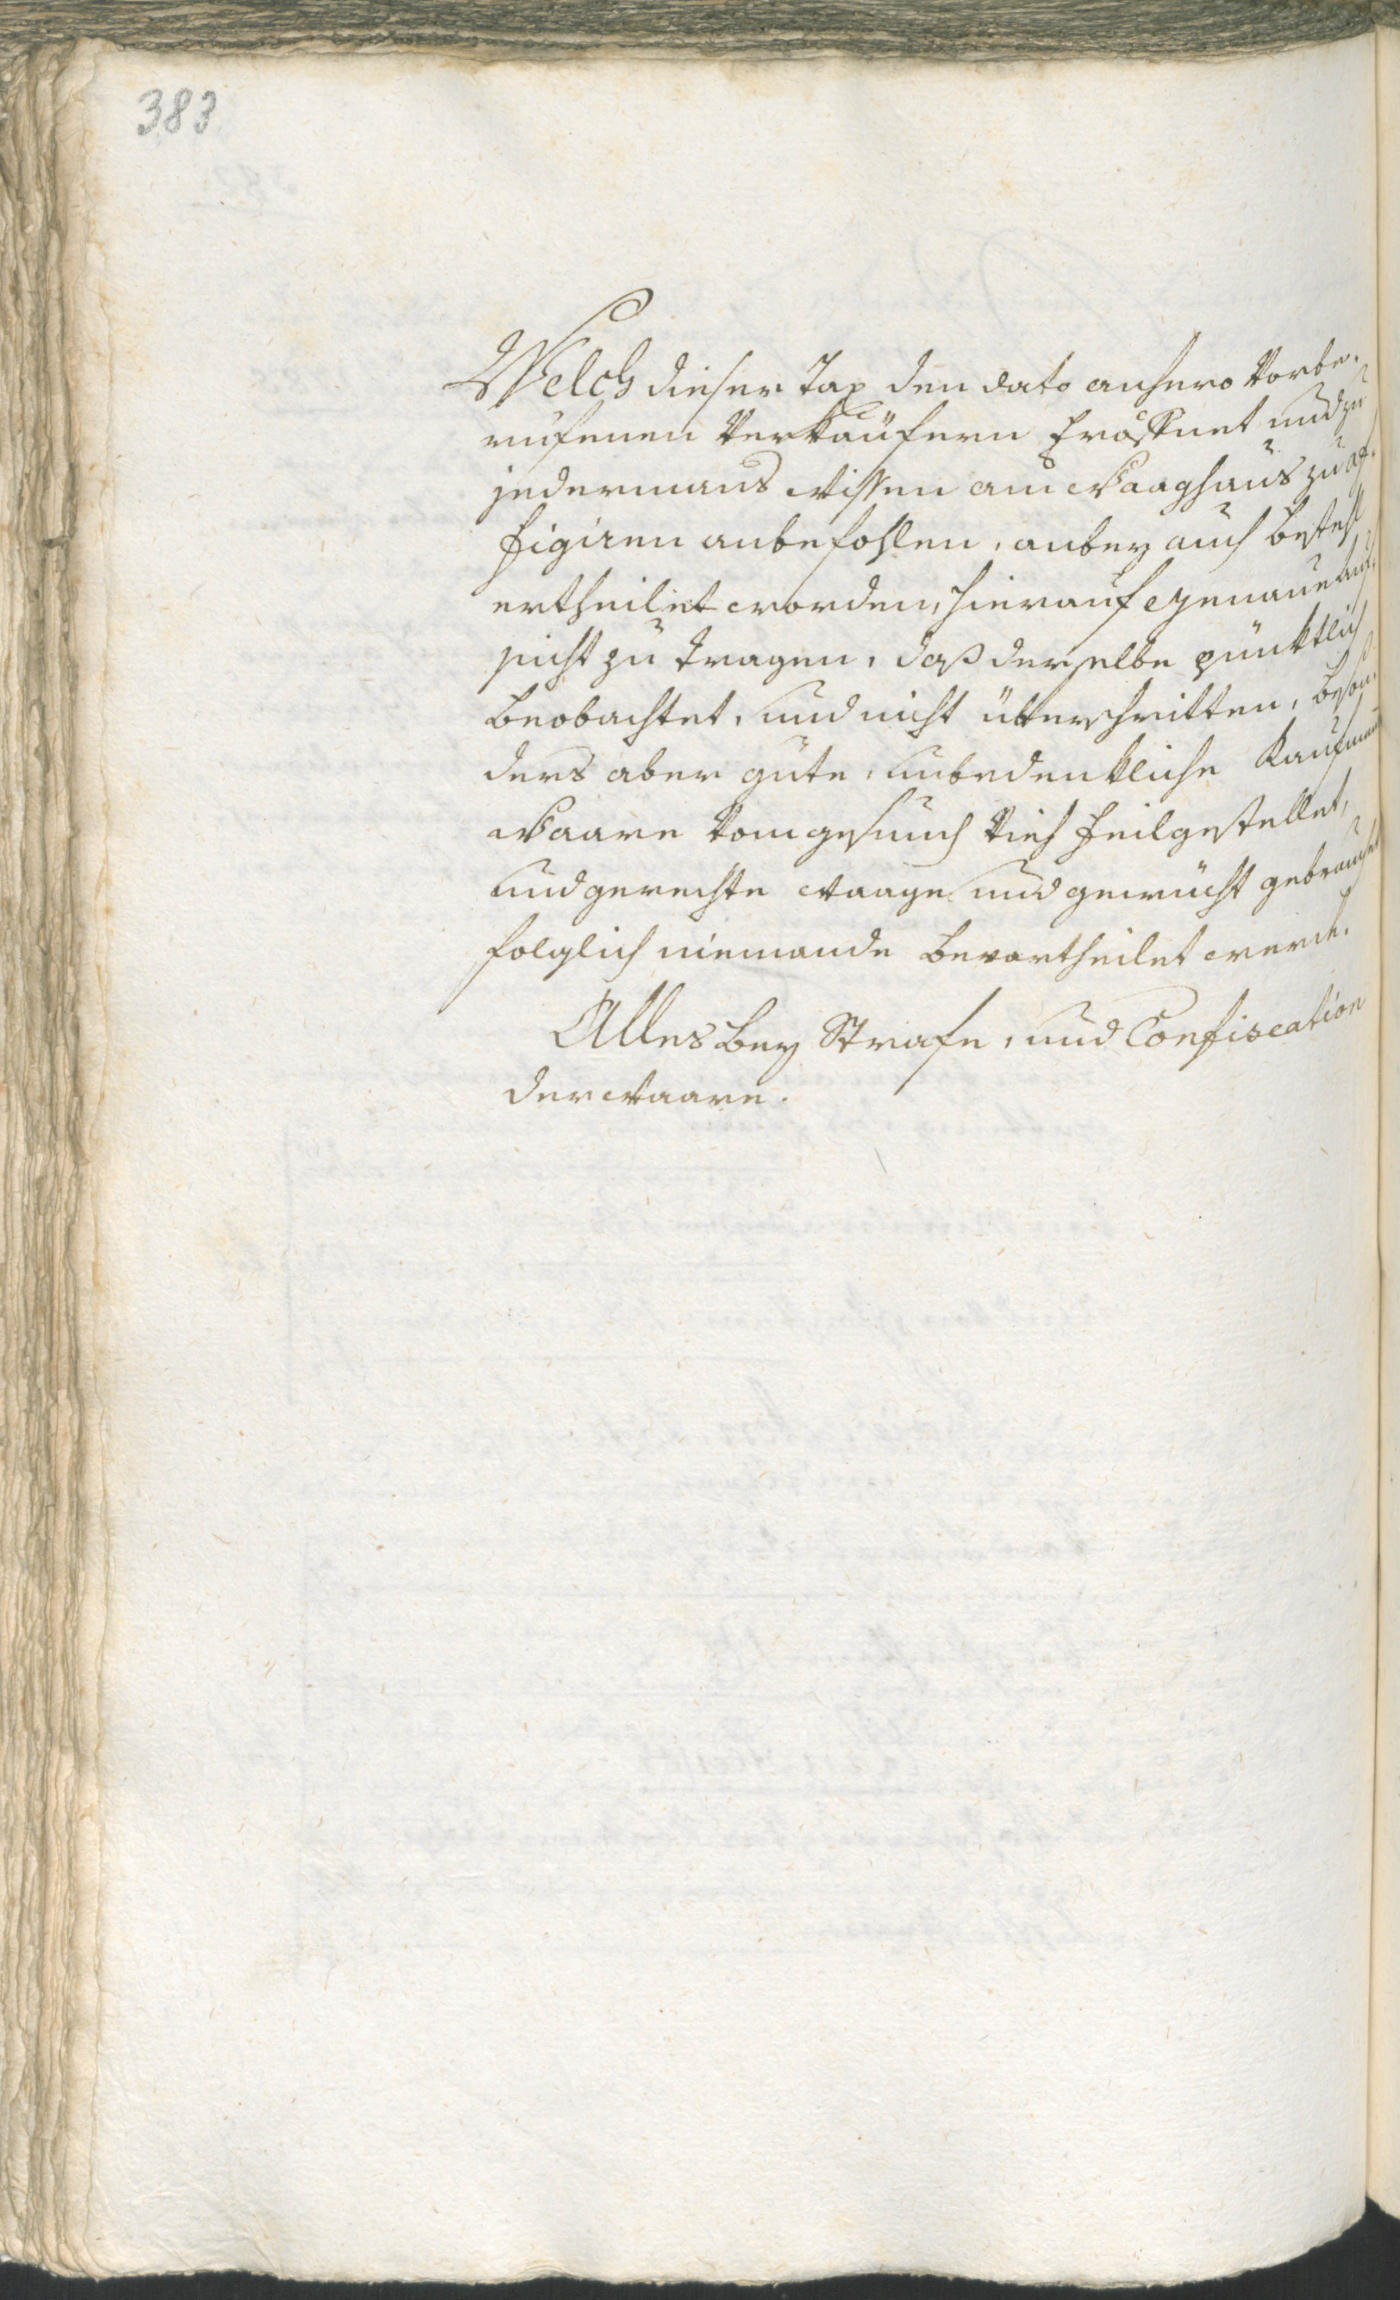 383
Welch dieser Tax den dato anhero Vorbe-
rufenen Verkäüfern Eröffnet und zu
jedermans Wissen am Waaghaus zu af-
figiren anbefohlen, anbey auch Befehl
ertheilet worden, hierauf genaue auf-
sicht zu tragen, daß derselbe pünktlich
beobachtet, und nicht überschritten, beson-
ders aber gute, unbedenkliche Kaufmans
Waare Vom gesunch Vieh feilgestellet,
und gerechte waage und gewücht gebraucht
folglich niemande bevortheilet werde.
Alles bey Strafe, und Confiscation
der waare.